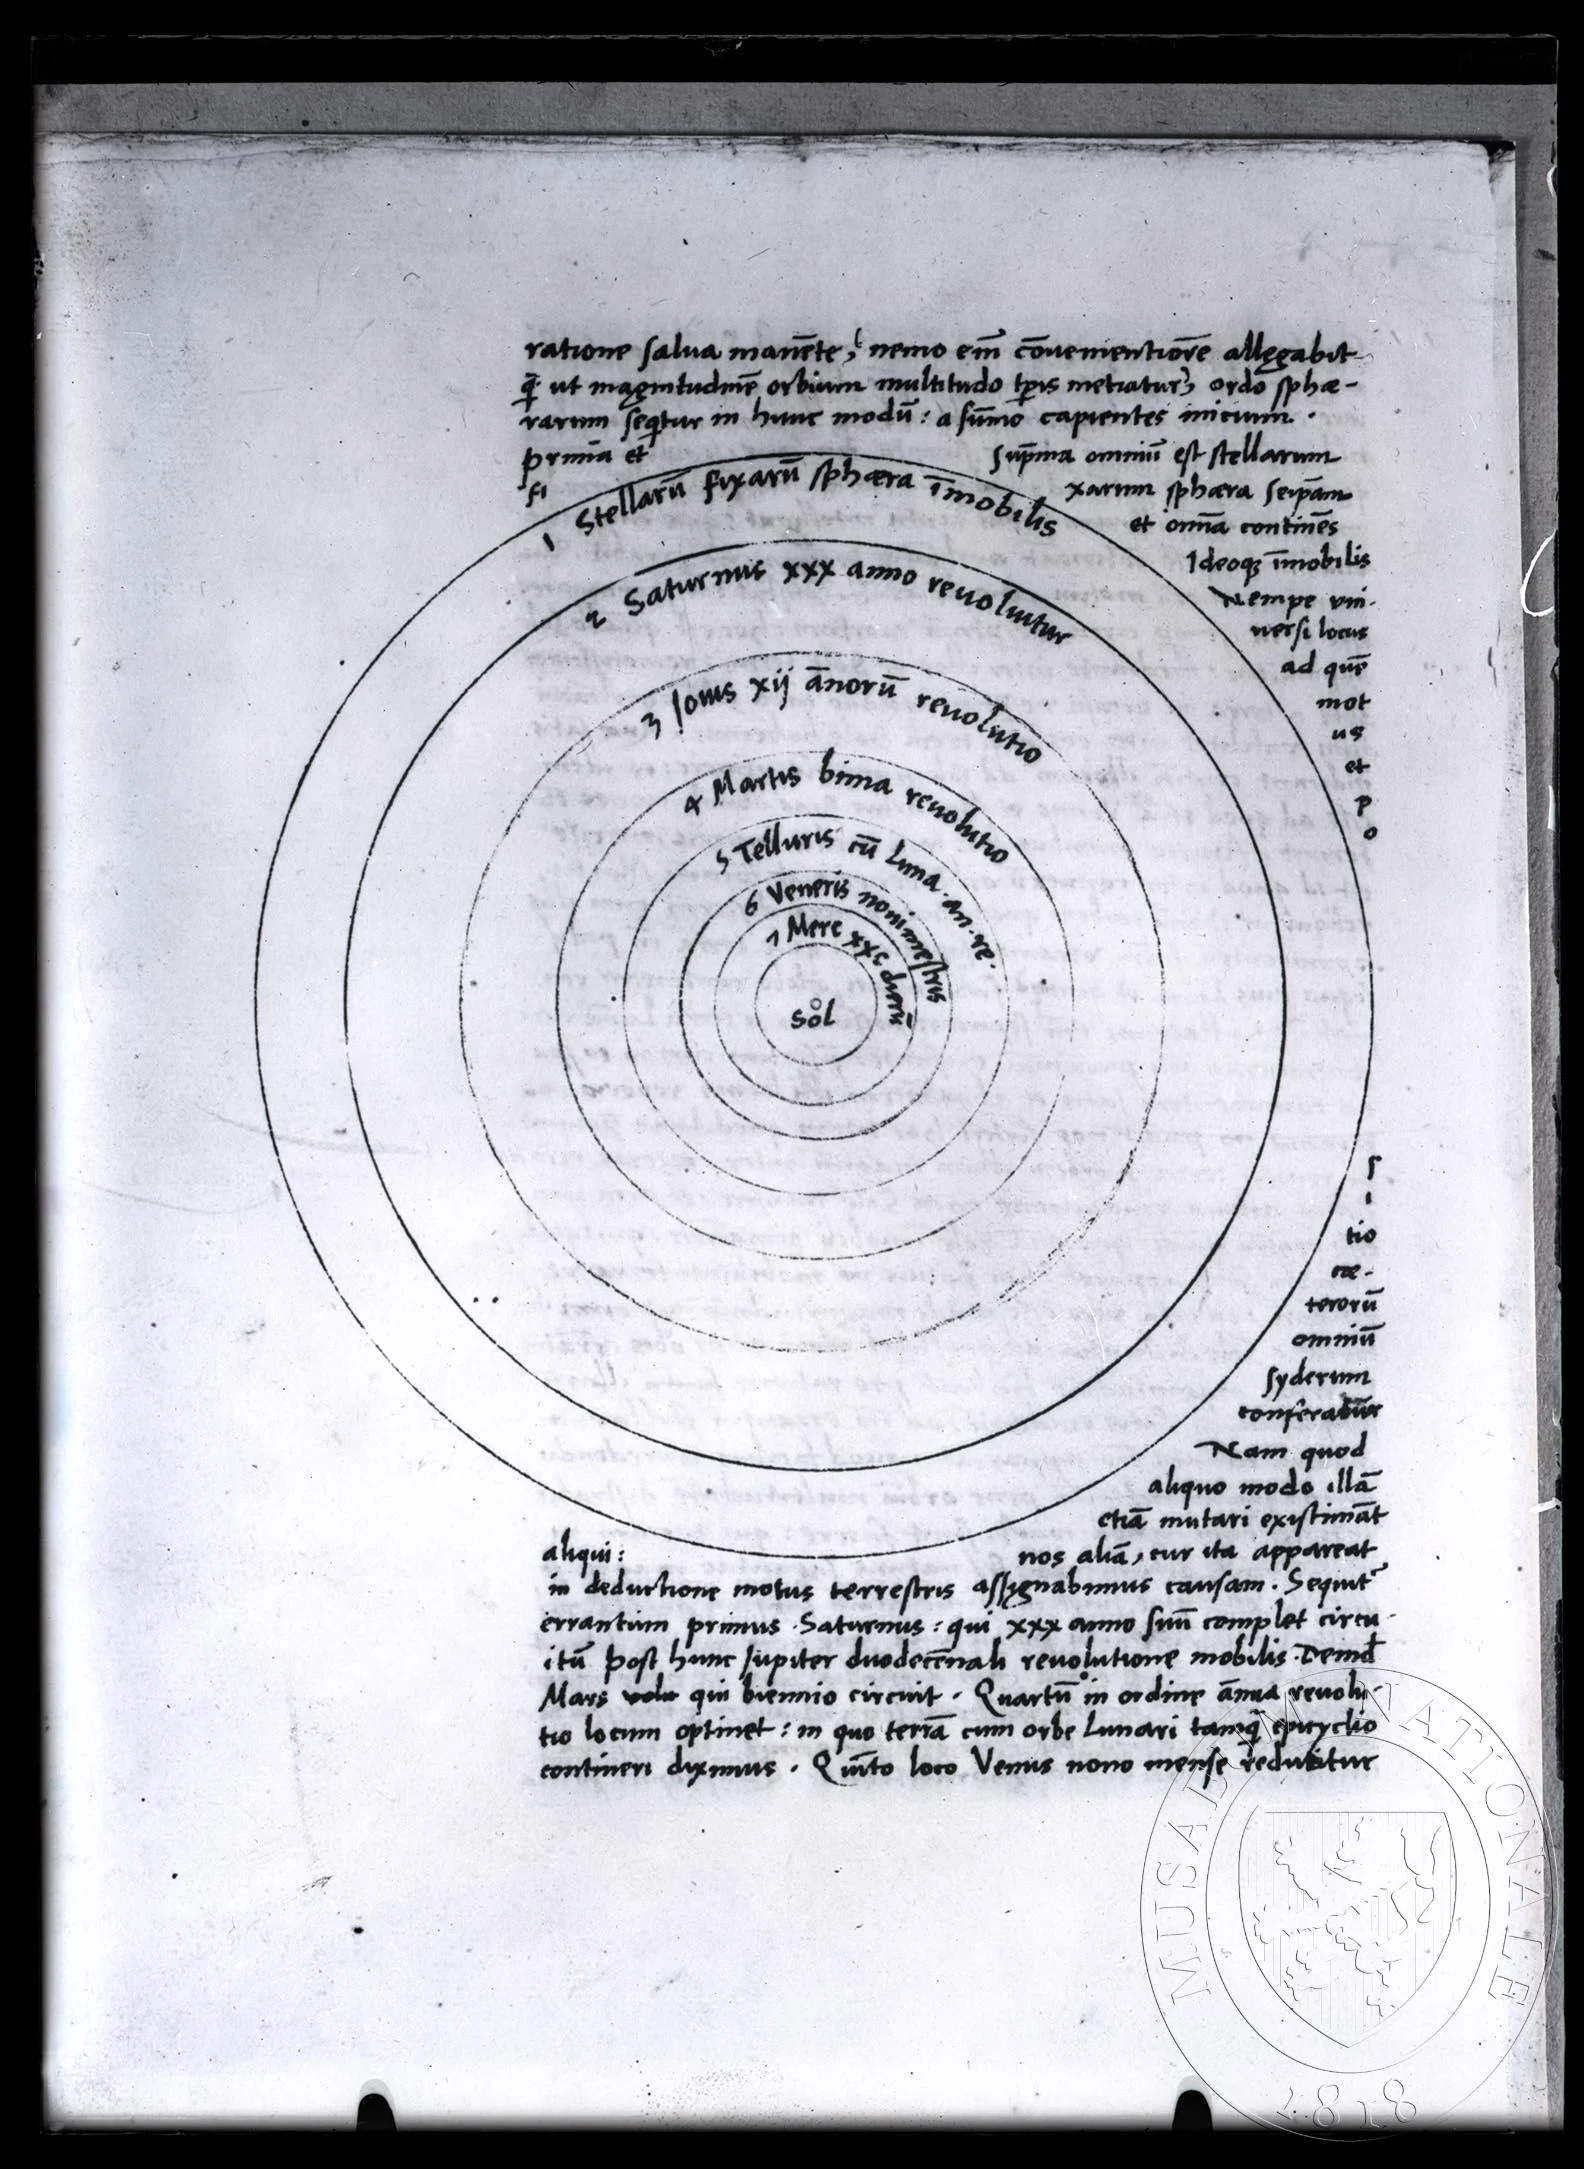 ratione salva manēte, nemo em̄ cōvenientiorē allegabit
q̄ ut magnitudinē orbium multitudo tp̄is metiatur ordo sphæ-
rarum seq̄tur in hunc modū: a sum̄o capientes inicium.
prima et Sup̄ma omniū est stellarum
fi xarum sphæra seip̄am
et om̄ia continēs
Ideoq; īmobilis
Nempe vni-
versi locus
ad quē
mot
us
et
p
o
s
i
tio
cæ-
terorū
omniū
syderum
conferatur
Nam quod
aliquo modo illā
etiā mutari existimāt
aliqui: nos aliā, cur ita appareat
in deductione motus terrestris assignabimus causam. Sequit᷑
errantium primus Saturnus: qui xxx anno suū complet circu-
itū post hunc Jupiter duodecēnali revolutione mobilis. Deind
Mars qui biennio circuit. Quartū in ordine ānua revolu-
tio locum optinet: in quo terrā cum orbe Lunari tamq̄ epicyclio
contineri diximus. Quīto loco Venus nono mense reducitur
1 Stellarū fixarū sphæra īmobilis
2 Saturnus xxx anno revoluitur
3 Jovis xij ānorū revolutio
4 Martis bima revolutio
5 Telluris cū Luna an. re.
6 Veneris nonimestris
7 Merc xxc dierū
Sol
MUSAEUM NATIONALE
1818